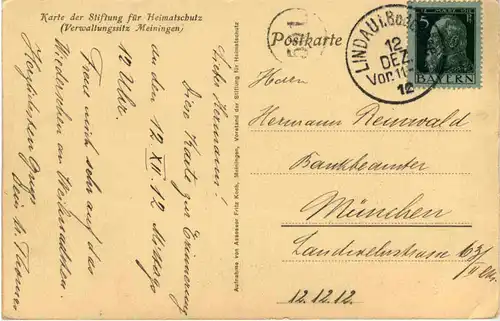 Karte der Stiftung für Heimatschutz
(Verwaltungssitz Meiningen)
Lieber Hermann!
Diese Karte zur Erinnerung
an den 12 XII 12 Mittags
12 Uhr.
Freue mich sehr auf das
Wiedersehen an Weihnachten.
Herzlichsten Gruss
Dein
Aufnahme von Assessor Fritz Koch, Meiningen, Vorstand der Stiftung für Heimatschutz
Postkarte
LINDAU i. Bode
12
DEZ.
Vor. 11
12
5
BAYERN
Herrn
Hermann Reinwald
Bankbeamter
München
Landwehrstrasse 63/
12.12.12.